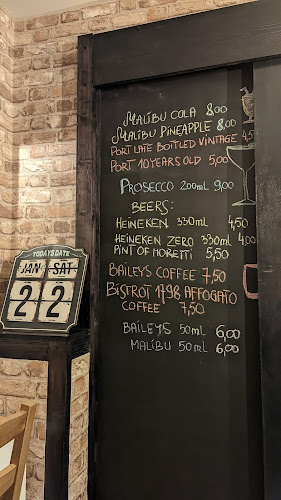 MALIBU COLA 8,00
MALIBU PINEAPPLE 8,00
PORT LATE BOTTLED VINTAGE 4,5
PORT 10 YEARS OLD 5,00
PROSECCO 200ml 9,00
BEERS:
HEINEKEN 330ml 4,50
HEINEKEN ZERO 330ml 4,00
PINT OF MORETTI 5,50
BAILEYS COFFEE 7,50
BISTROT 1798 AFFOGATO
COFFEE 7,50
BAILEYS 50ml 6,00
MALIBU 50ml 6,00
TODAYS DATE
JAN SAT
2 2